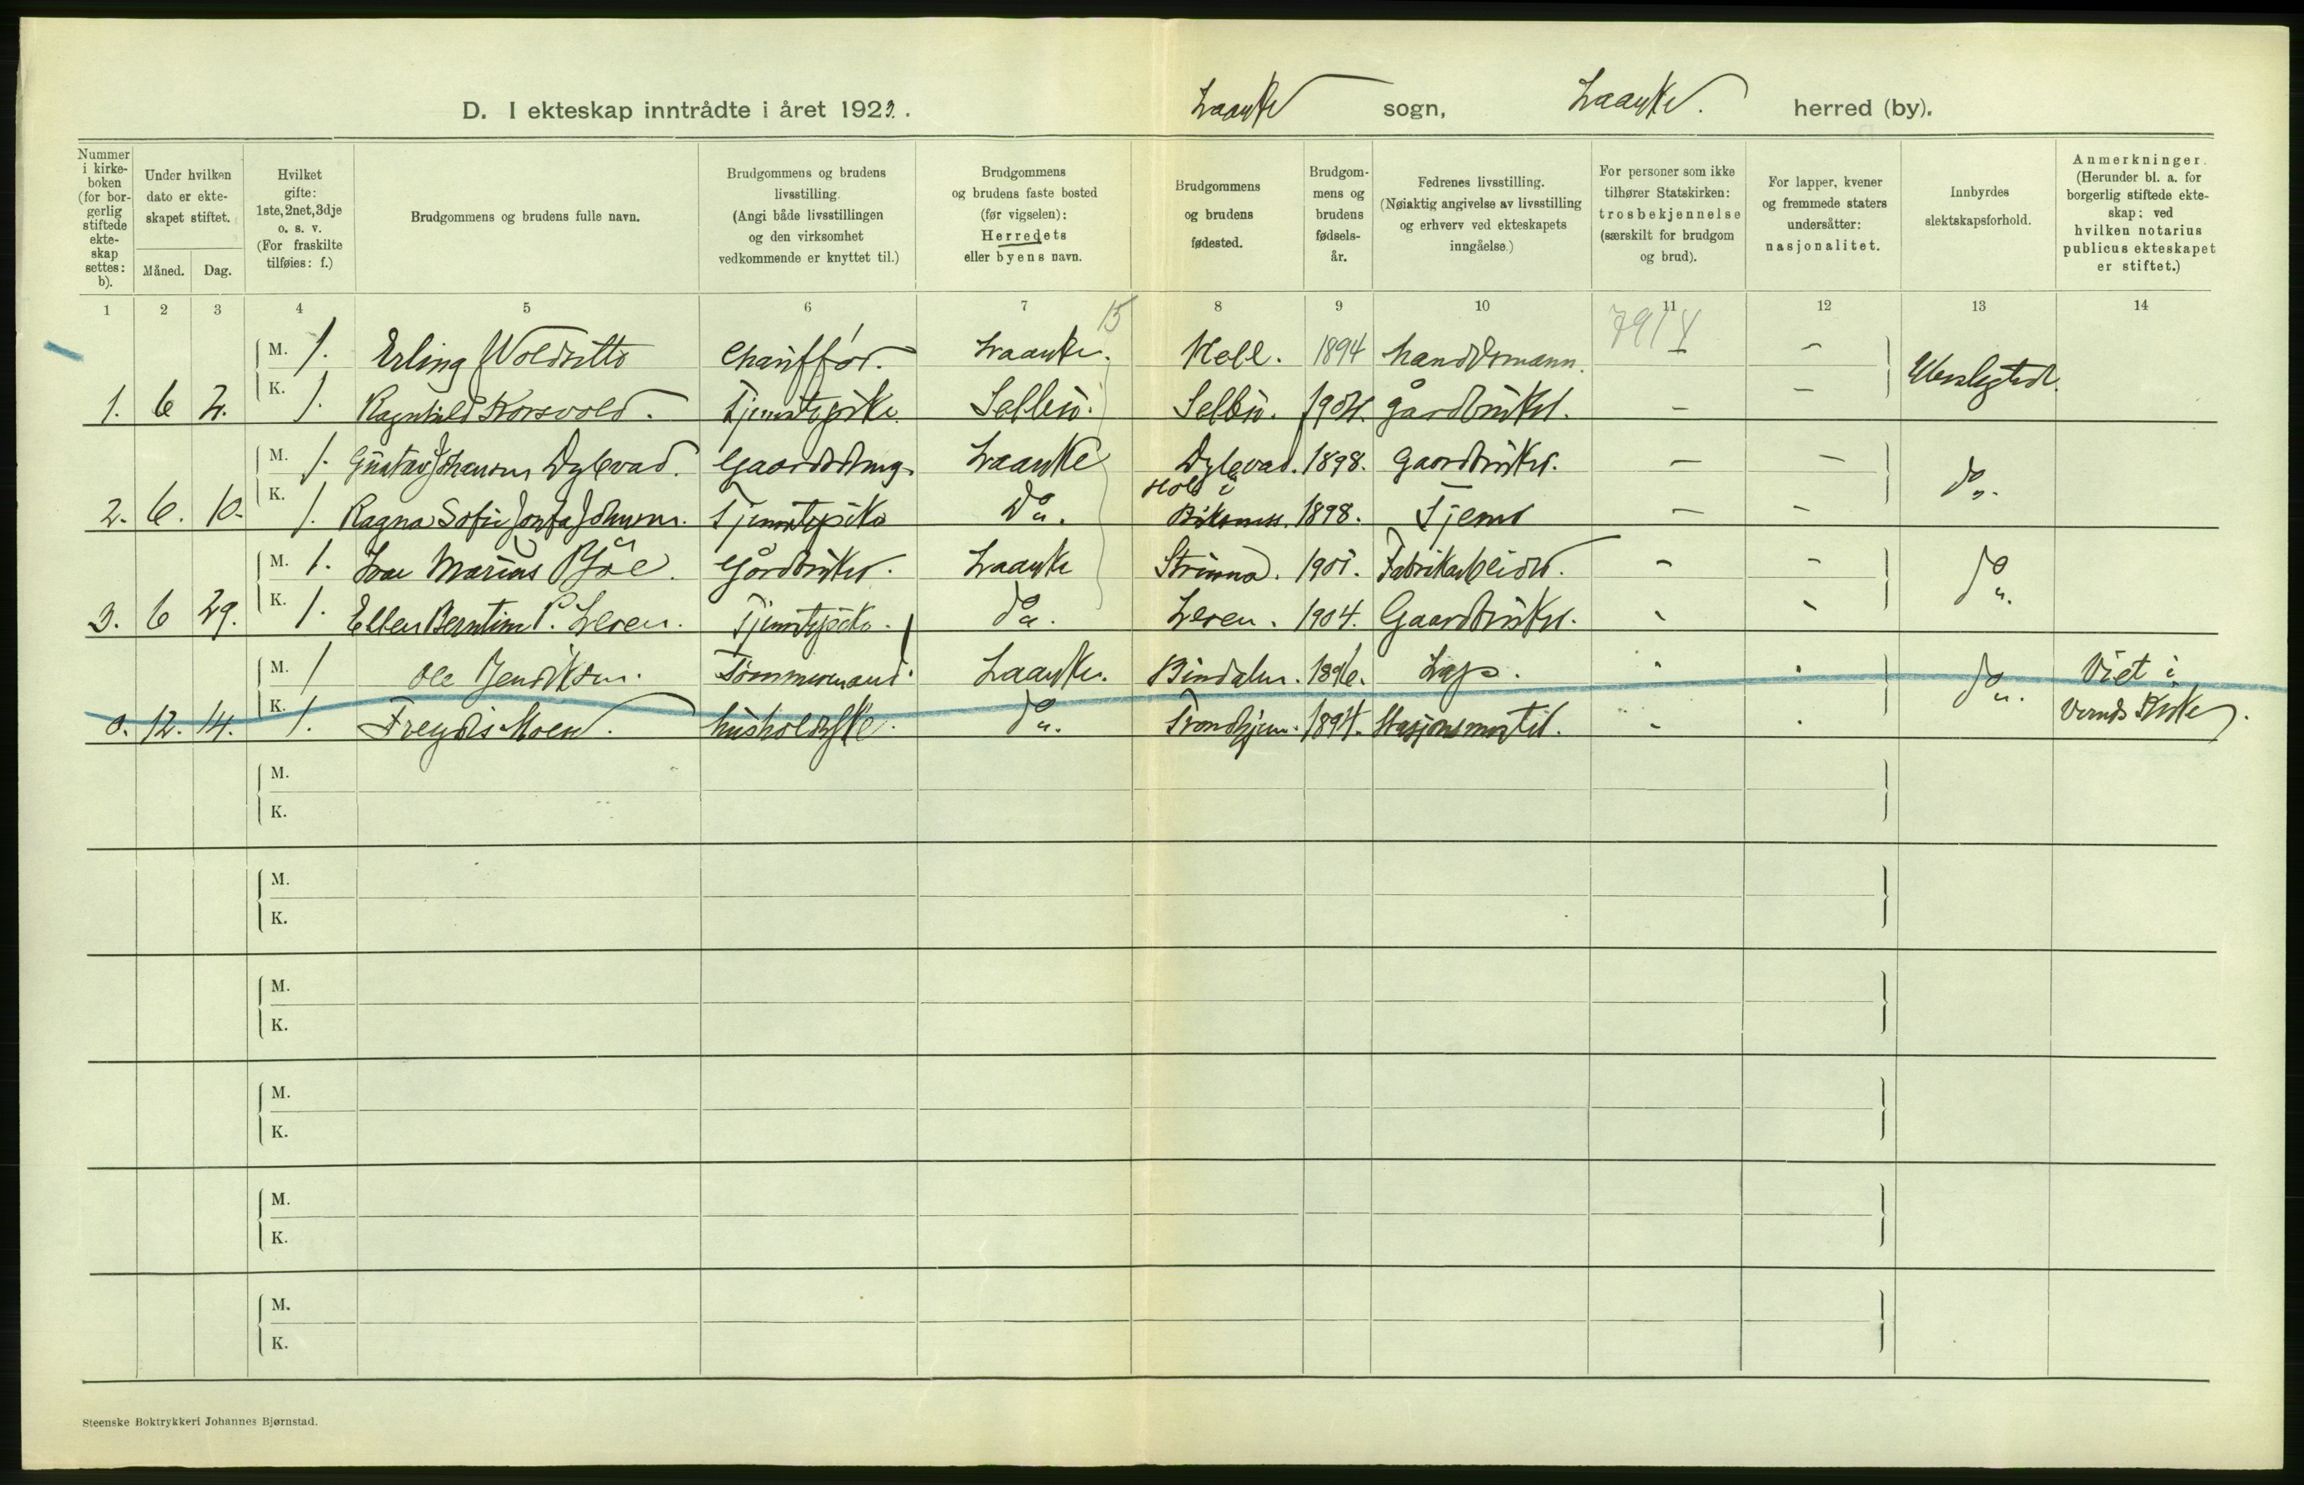 D. I ekteskap inntrådte i året 1923. Laanke sogn, Laanke. herred (by).
Nummer i kirkeboken (for borgerlig stiftede ekteskap settes: b).
Under hvilken dato er ekteskapet stiftet.
Måned. Dag.
Hvilket gifte: 1ste, 2net, 3dje o. s. v. (For fraskilte tilføies: f.)
Brudgommens og brudens fulle navn.
Brudgommens og brudens livsstilling. (Angi både livsstillingen og den virksomhet vedkommende er knyttet til.)
Brudgommens og brudens faste bosted (før vigselen): Herredets eller byens navn.
Brudgommens og brudens fødested.
Brudgommens og brudens fødselsår.
Fedrenes livsstilling. (Nøiaktig angivelse av livsstilling og erhverv ved ekteskapets inngåelse.)
For personer som ikke tilhører Statskirken: trosbekjennelse (særskilt for brudgom og brud).
For lapper, kvener og fremmede staters undersåtter: nasjonalitet.
Innbyrdes slektskapsforhold.
Anmerkninger. (Herunder bl. a. for borgerlig stiftede ekteskap: ved hvilken notarius publicus ekteskapet er stiftet.)
1 2 3 4 5 6 7 8 9 10 11 12 13 14
15
M. 1. Erling Chauffør. Laanke. Hell. 1894 Handelsmann. - -
1. 6 2. K. 1. Ragnhild Korsvold. Tjenestepike Selbu. Selbu. gårdbruker. - - Ubeslegtede
M. 1. Gustav Johansen Dylevad. Laanke Dylevad. 1898. Gaardbruker. - -
2. 6. 10. K. 1. Ragna Sofie Tjenestepike Do. 1898. - - Do.
M. 1. Marius Gårdbruker. Laanke Strinna. 1901. Fabrikarbeider. - -
3. 6 29. K. 1. Ellen Berntine P. Leren. Tjenestepike. do. Leren. 1904. Gaardbruker. - - do.
M. 1 Ole Tømmermand. Laanke. Bindalen. 1896. Lap.
0. 12. 14. K. 1. Freydis Moen. do. Trondhjem. 1894. - - do. Viet i
M.
K.
M.
K.
M.
K.
M.
K.
M.
K.
M.
K.
Steenske Boktrykkeri Johannes Bjørnstad.